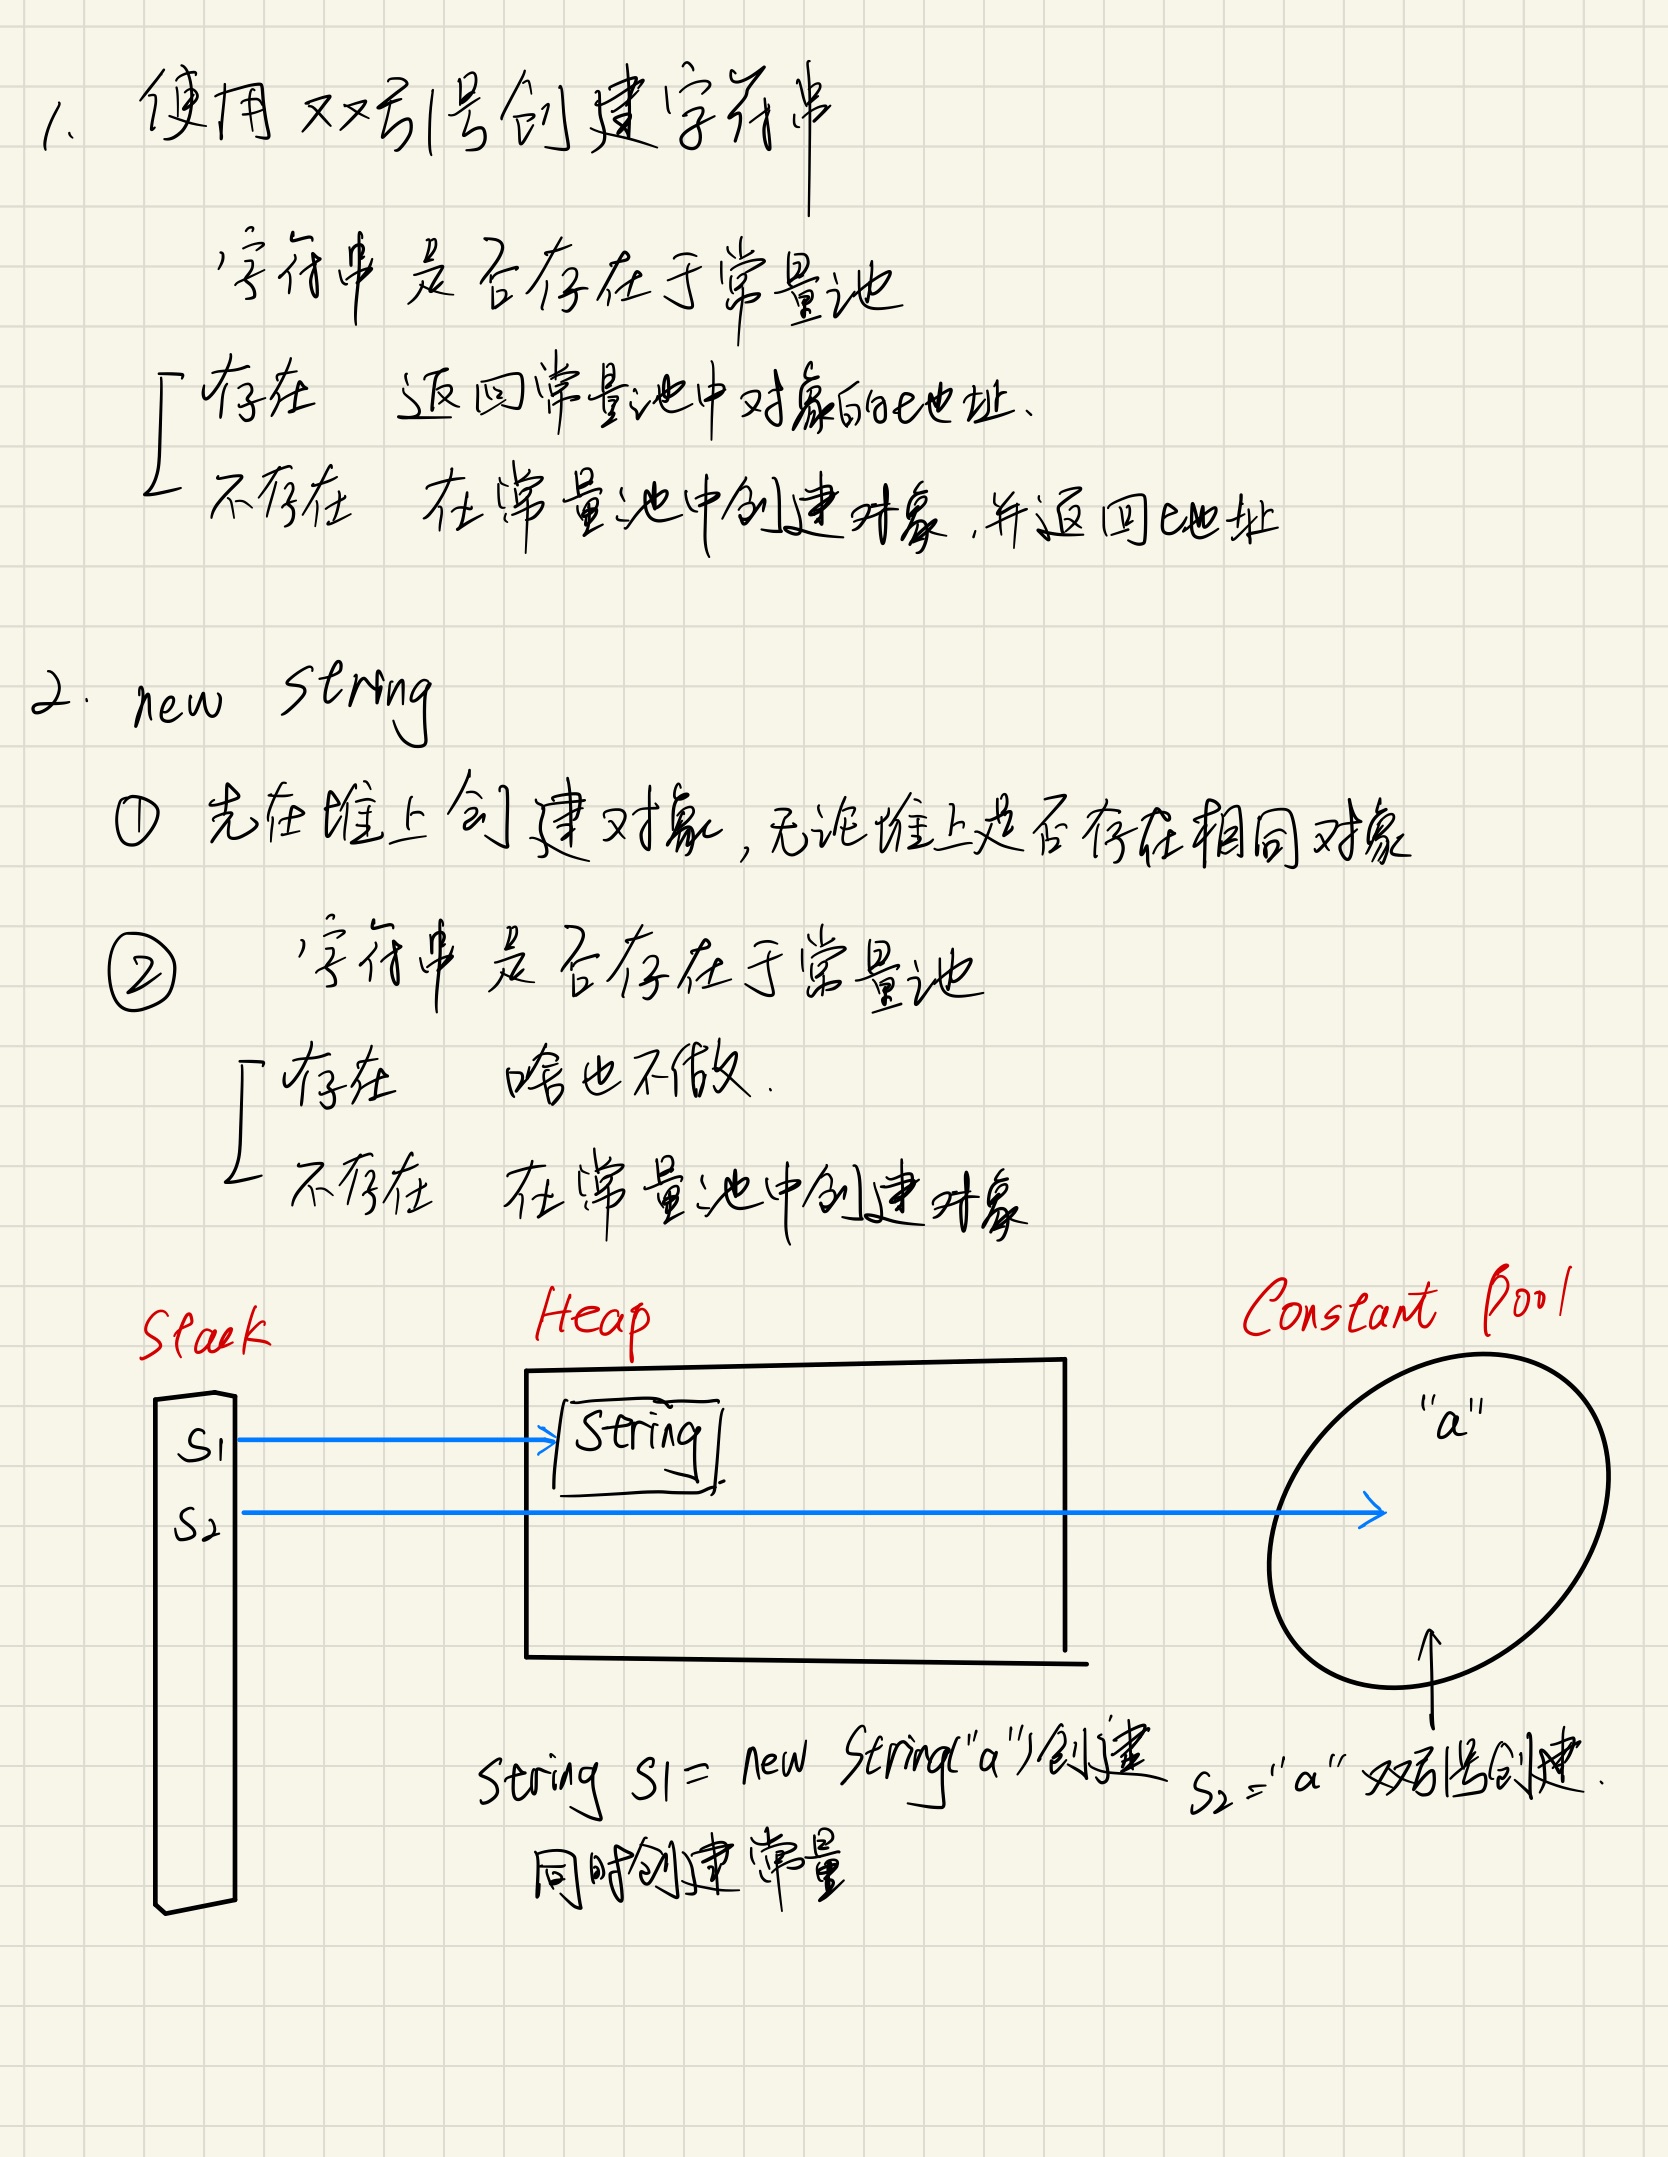 1. 使用双引号创建字符串
字符串是否存在于常量池
存在 返回常量池中对象的地址.
不存在 在常量池中创建对象,并返回地址
2. new String
① 先在堆上创建对象,无论堆上是否存在相同对象
② 字符串是否存在于常量池
存在 啥也不做.
不存在 在常量池中创建对象
Stack Heap Constant Pool
S1 String "a"
S2
String S1 = new String("a")创建 S2="a" 双引号创建.
同时创建常量